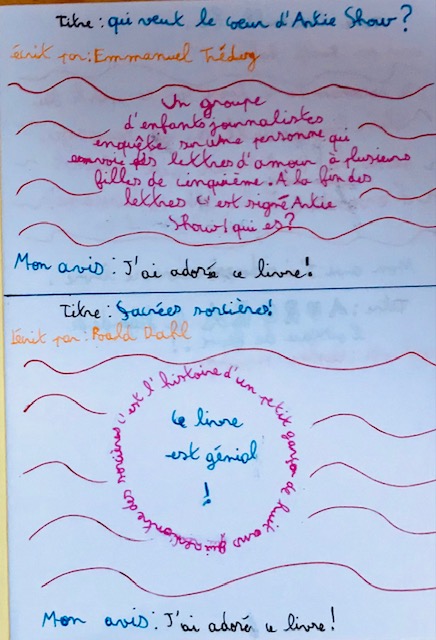 Titre : qui veut le cœur d'Artie Show ?
écrit par : Emmanuel Trédez
Un groupe
d'enfants journalistes
enquête sur une personne qui
envoie des lettres d'amour à plusieurs
filles de cinquième. A la fin des
lettres c'est signé Artie
Show ! qui es ?
Mon avis : J'ai adoré ce livre !
Titre : Sacrées sorcières !
écrit par : Roald Dahl
c'est l'histoire d'un petit garçon de huit ans qui rencontre des sorcières
Ce livre
est génial
!
Mon avis : J'ai adoré ce livre !